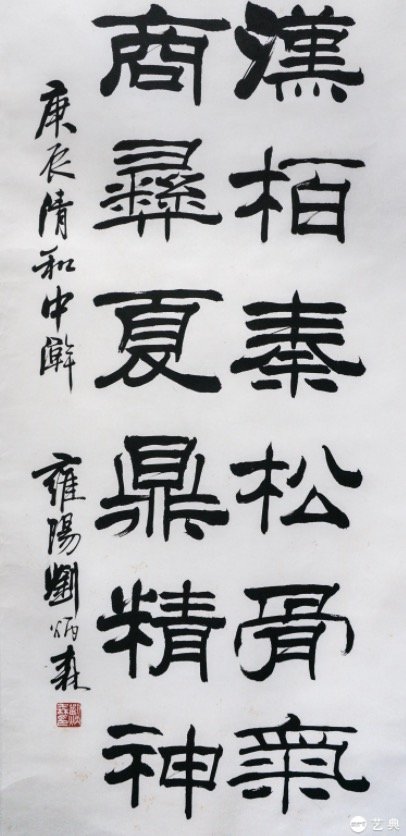 漢柏秦松骨氣
商彝夏鼎精神
庚辰清和中澣
雍陽劉炳森
艺典